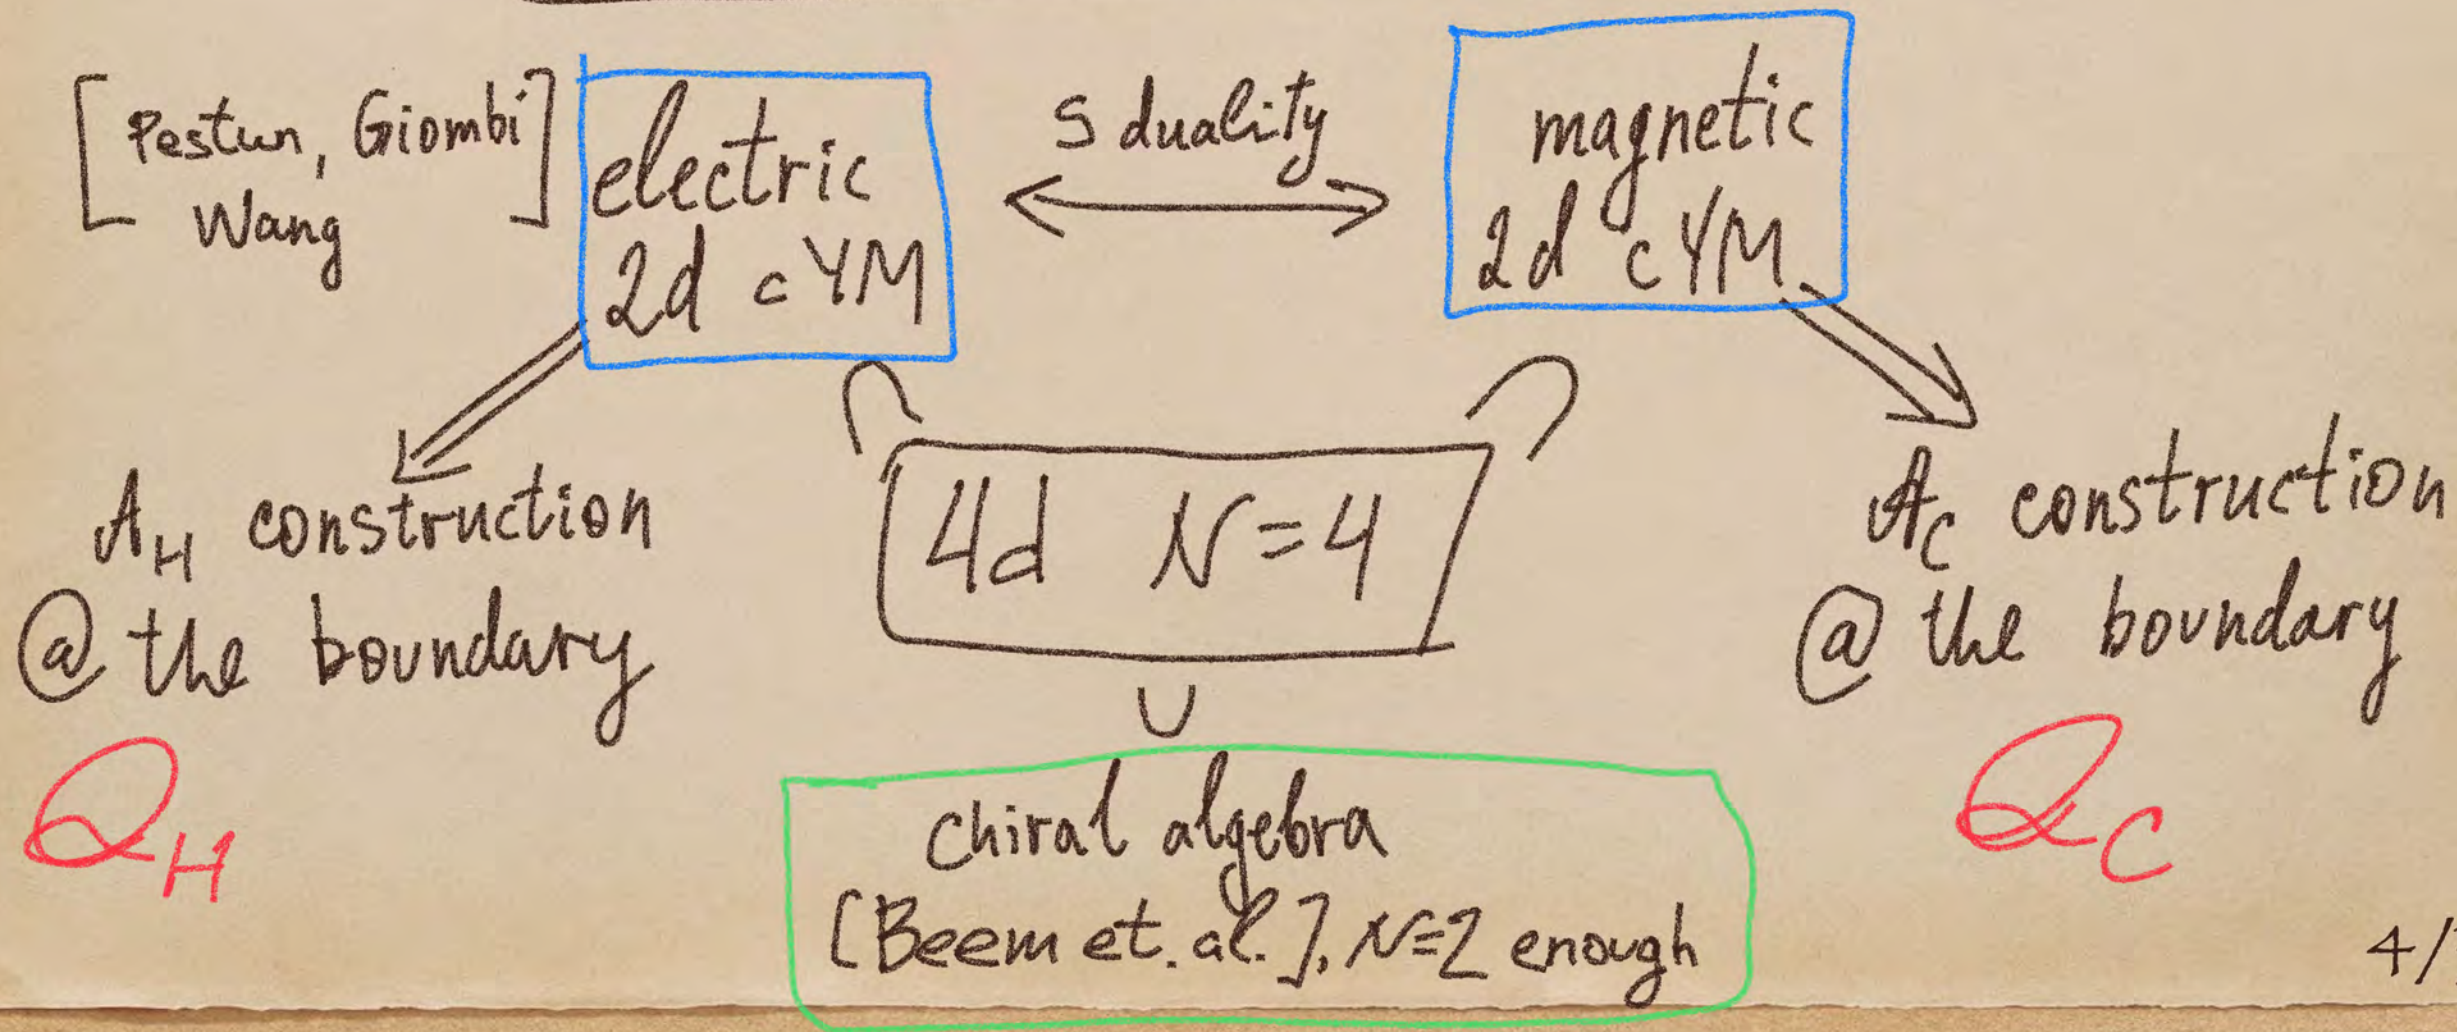 [Pestun, Giombi
Wang]
electric
2d cYM
S duality
magnetic
2d cYM
A_H construction
@ the boundary
Q_H
4d N=4
A_C construction
@ the boundary
Q_C
∪
chiral algebra
[Beem et. al.], N=2 enough
4/